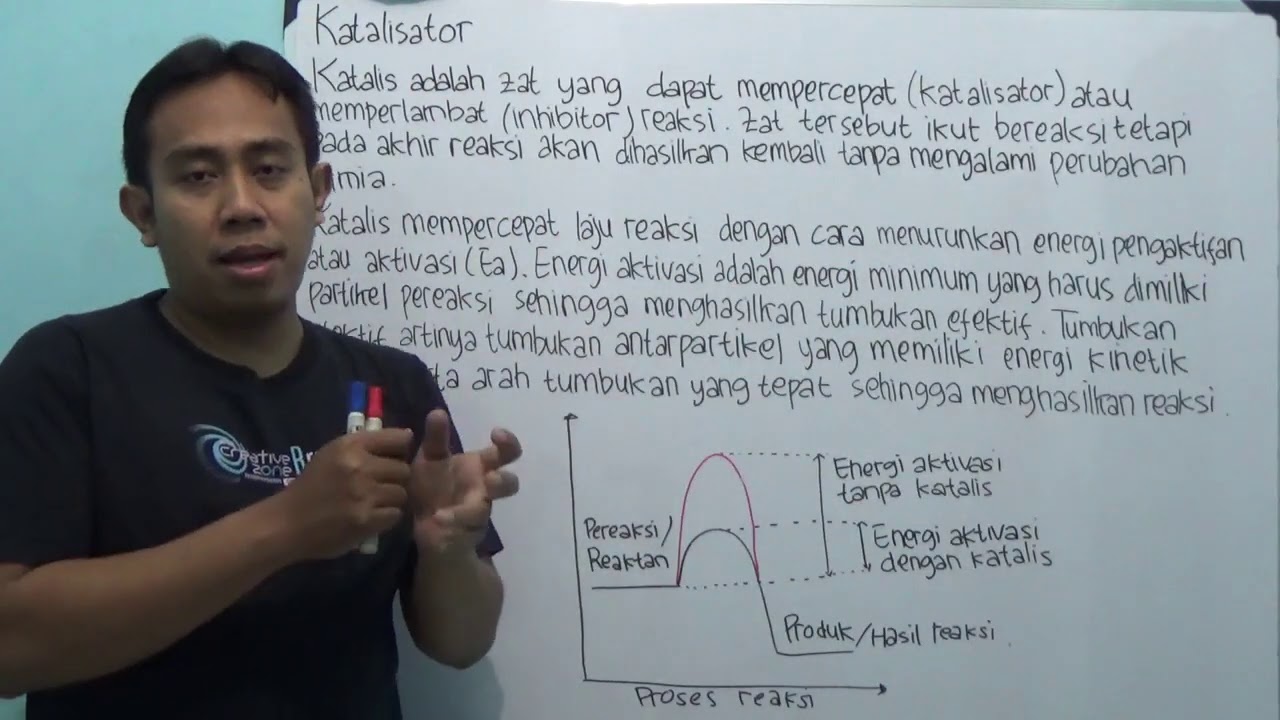 Katalisator
Katalis adalah zat yang dapat mempercepat (katalisator) atau
memperlambat (inhibitor) reaksi. Zat tersebut ikut bereaksi tetapi
akhir reaksi akan dihasilkan kembali tanpa mengalami perubahan
Katalis mempercepat laju reaksi dengan cara menurunkan energi pengaktifan
atau aktivasi (Ea). Energi aktivasi adalah energi minimum yang harus dimiliki
partikel pereaksi sehingga menghasilkan tumbukan efektif. Tumbukan
artinya tumbukan antarpartikel yang memiliki energi kinetik
arah tumbukan yang tepat sehingga menghasilkan reaksi.
Energi aktivasi
tanpa katalis
Pereaksi/
Reaktan
Energi aktivasi
dengan katalis
Produk/Hasil reaksi
Proses reaksi
creative
zone